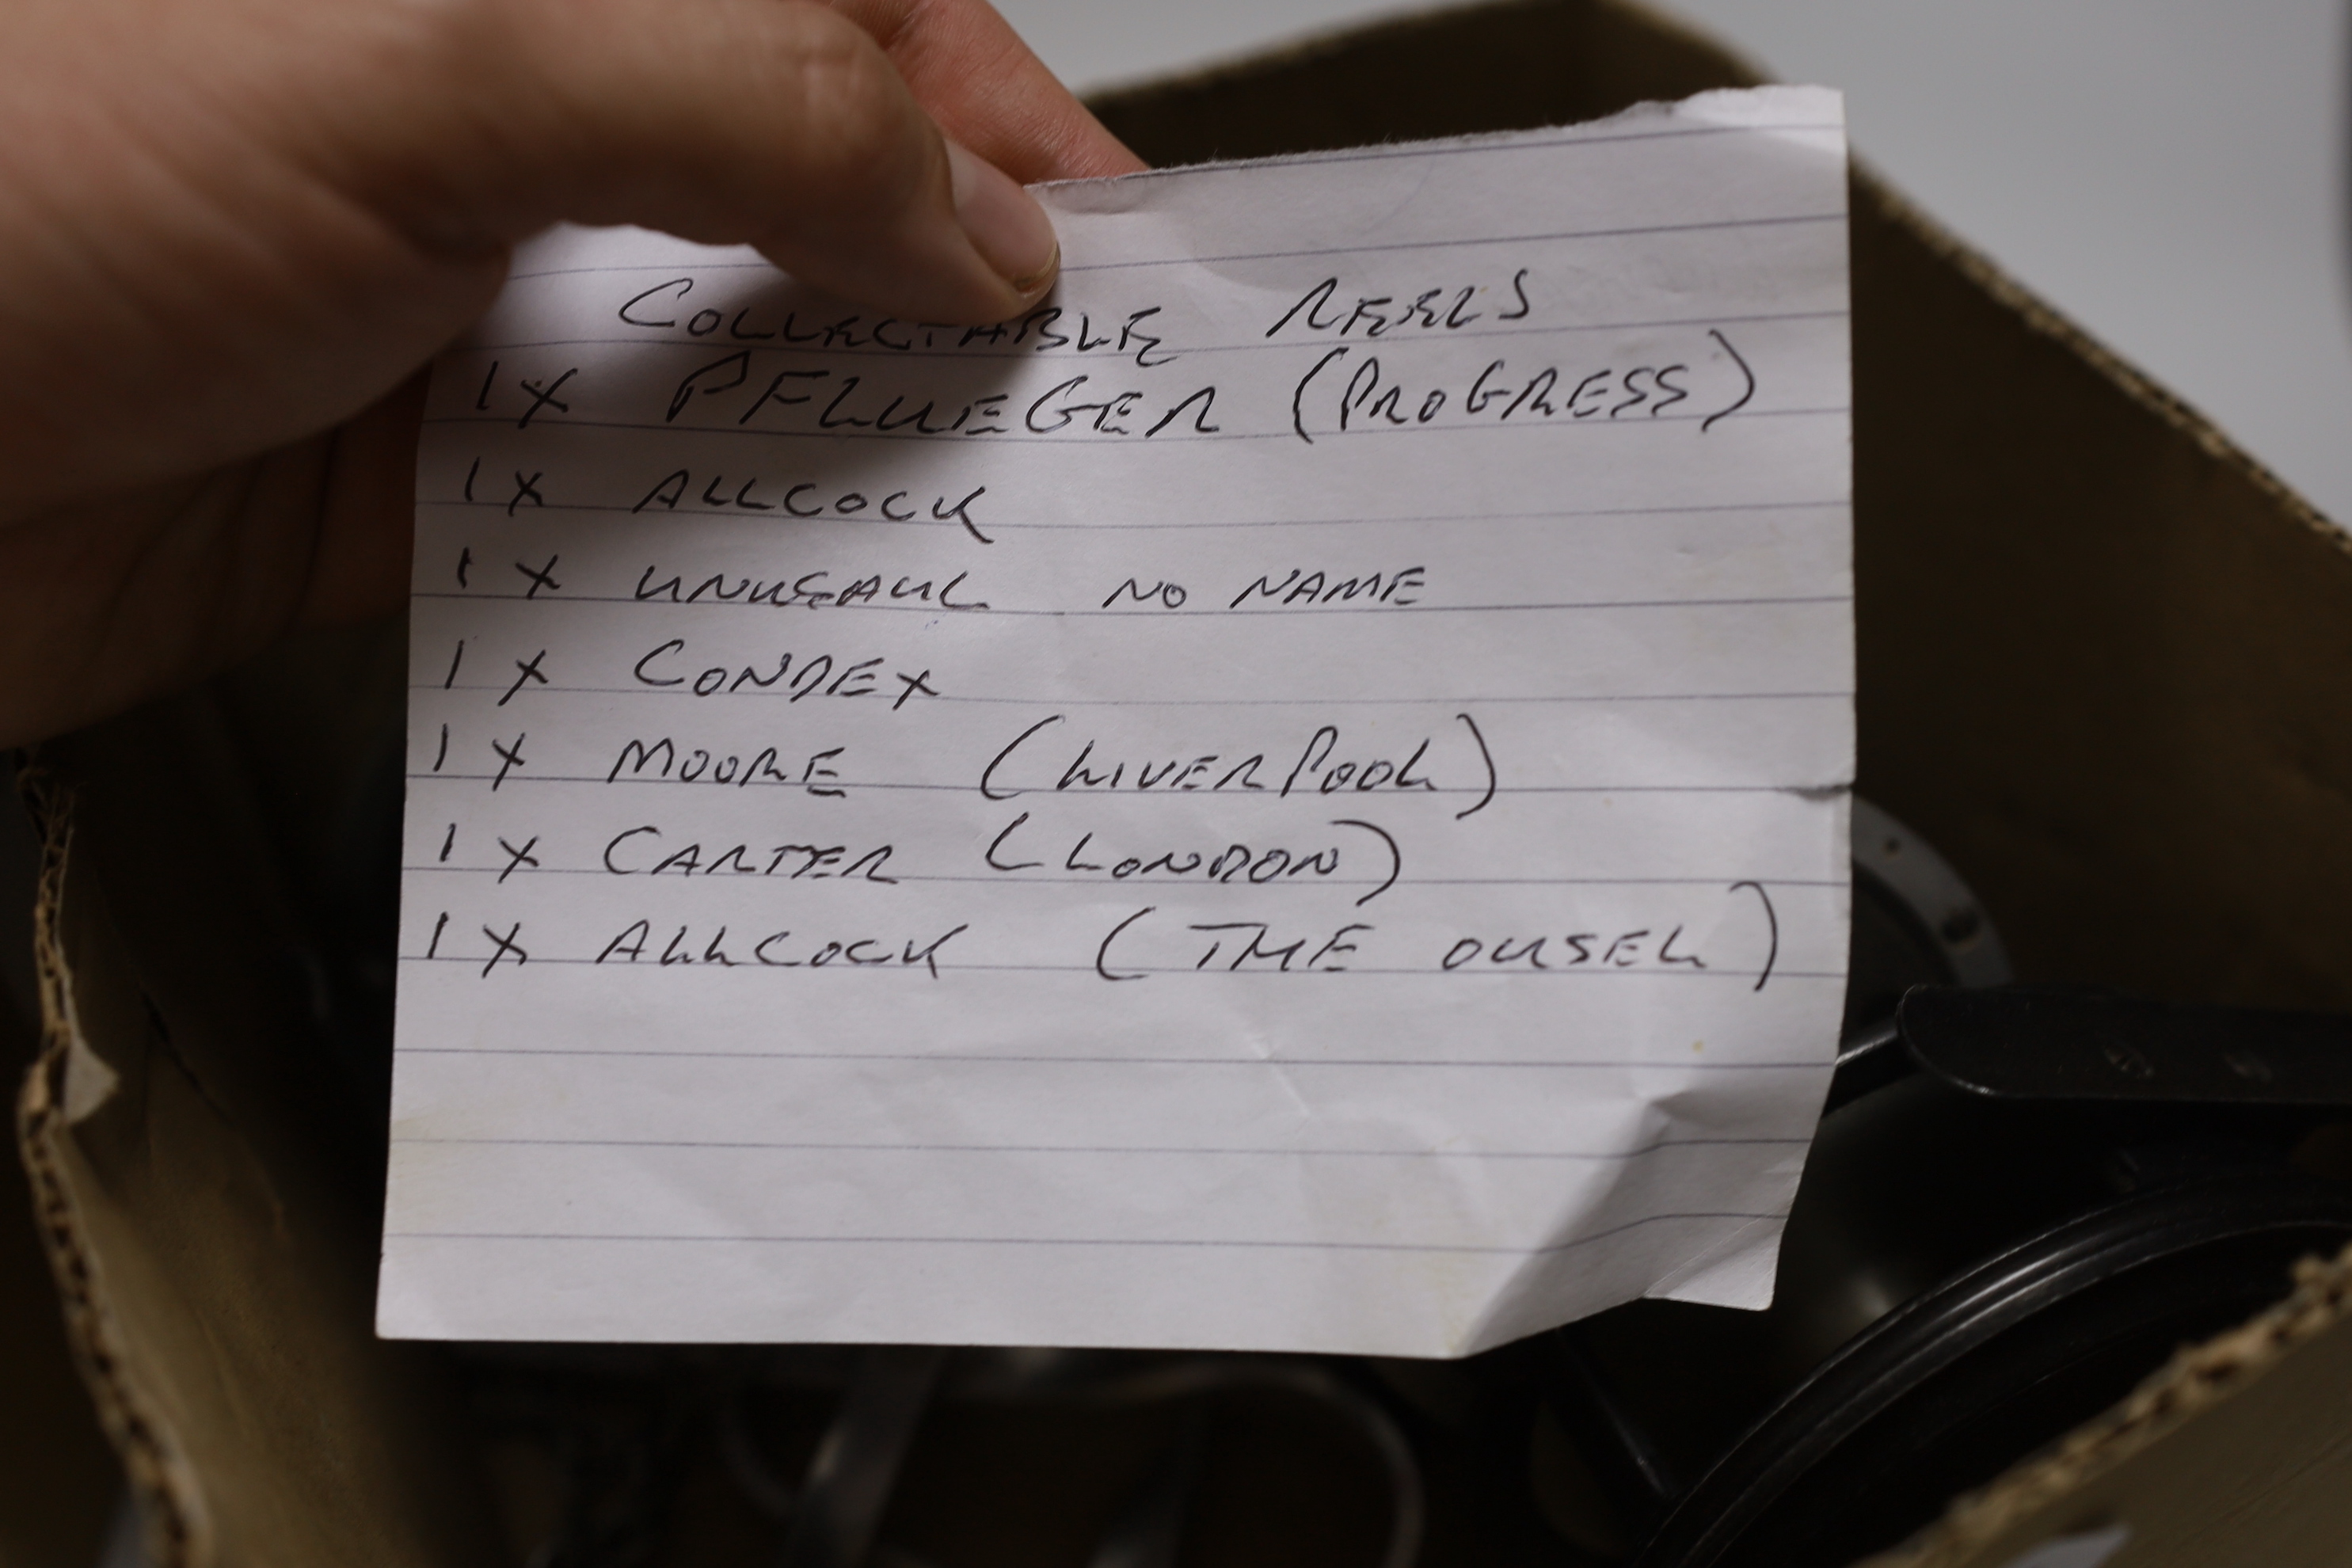 COLLECTABLE REELS
1X PFLUEGER (PROGRESS)
1X ALLCOCK
1X UNUSAUL NO NAME
1X CONDEX
1X MOORE (LIVERPOOL)
1X CARTER (LONDON)
1X ALLCOCK (THE OUSEL)